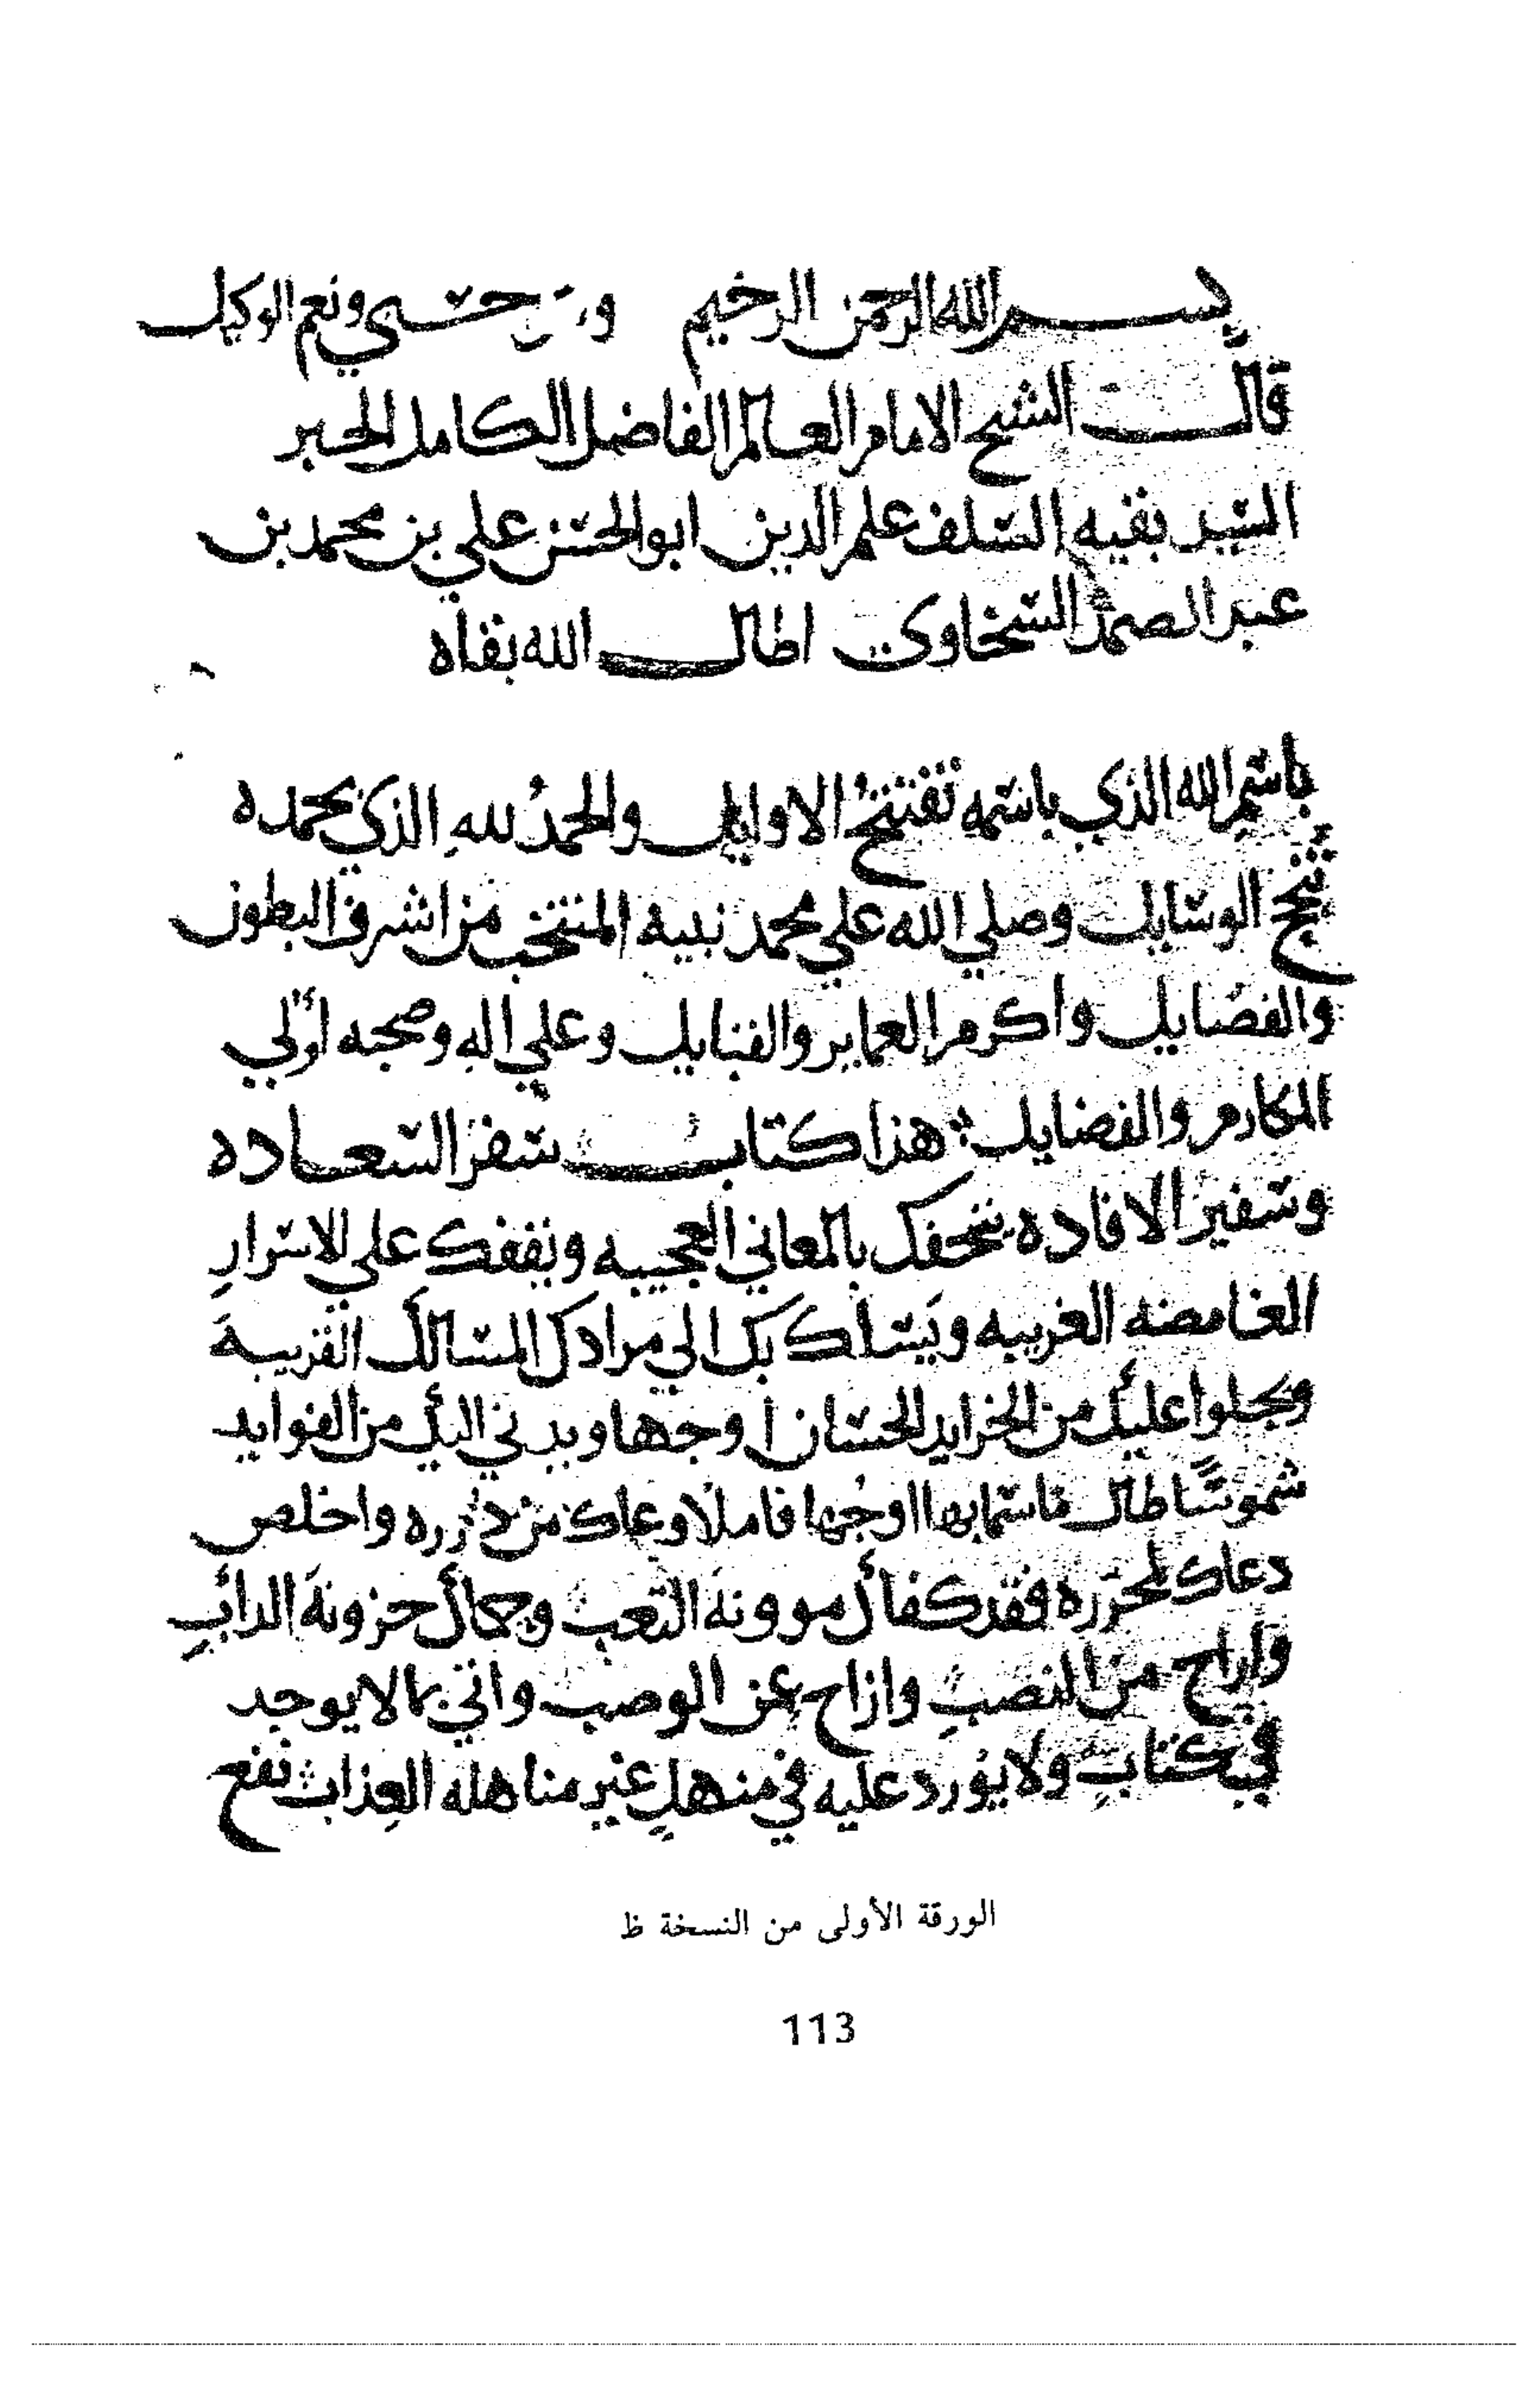 بسم الله الرحمن الرحيم حسبي ونعم الوكيل
قال الشيخ الامام العالم الفاضل الكامل الحبر
السيد بقيه السلف علم الدين ابو الحسن علي بن محمد بن
عبد الصمد السخاوي اطال الله بقاه
باسم الله الذي باسمه تفتتح الاوايل والحمدُ للهِ الذي بحمده
تُنجح الوسايل وصلي الله علي محمد نبيه المنتخب من اشرف البطون
والفصايل واكرم العماير والقبايل وعلي اله وصحبه اوُلي
المكارم والفضايل هذا كتاب سفر السعاده
وسفير الافاده يتحفك بالمعاني العجيبه ويقفك علي الاسرارِ
الغامضه الغريبه ويَسلك بك الي مرادك المسالكَ القريبةَ
ويجلوا عليك من الخرايد الحسان اوجها ويدني اليك من الفوايد
شموسًا طال ما سما بها اوجُها فاملا وعاك من دُرره واخلص
دعاك لمحرّره فقد كفاك موونة التعب وحماك حزونةَ الدائبِ
واراح من النصبِ وازاح عن الوصب واتي بمالا يوجد
في كتابٍ ولا يُورد عليه في منهلٍ غير مناهله العِذاب نفع
الورقة الأولى من النسخة ظ
113